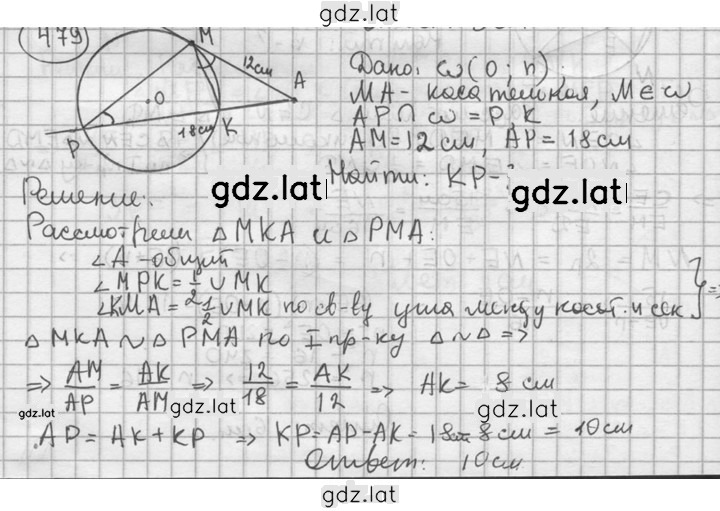 gdz.lat
479
M
12см
A
O
K
P
18см
Дано: ω(O; r);
MA- касательная, M∈ω
AP∩ω=P,K
AM=12см, AP=18см
Найти: KP-?
gdz.lat gdz.lat
Решение:
Рассмотрим △MKA и △PMA:
∠A -общий
∠MPK=1/2 ∪MK
∠KMA=1/2 ∪MK по св-ву угла между касат. и сек
△MKA ~ △PMA по I пр-ку △~△ =>
=> AM/AP = AK/AM => 12/18 = AK/12 => AK= 8 см
gdz.lat gdz.lat gdz.lat
AP=AK+KP => KP=AP-AK=18см-8см=10см
Ответ: 10см
gdz.lat